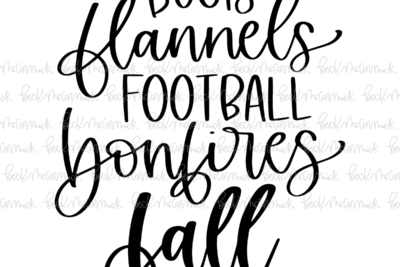 BOOTS
flannels
FOOTBALL
bonfires
fall